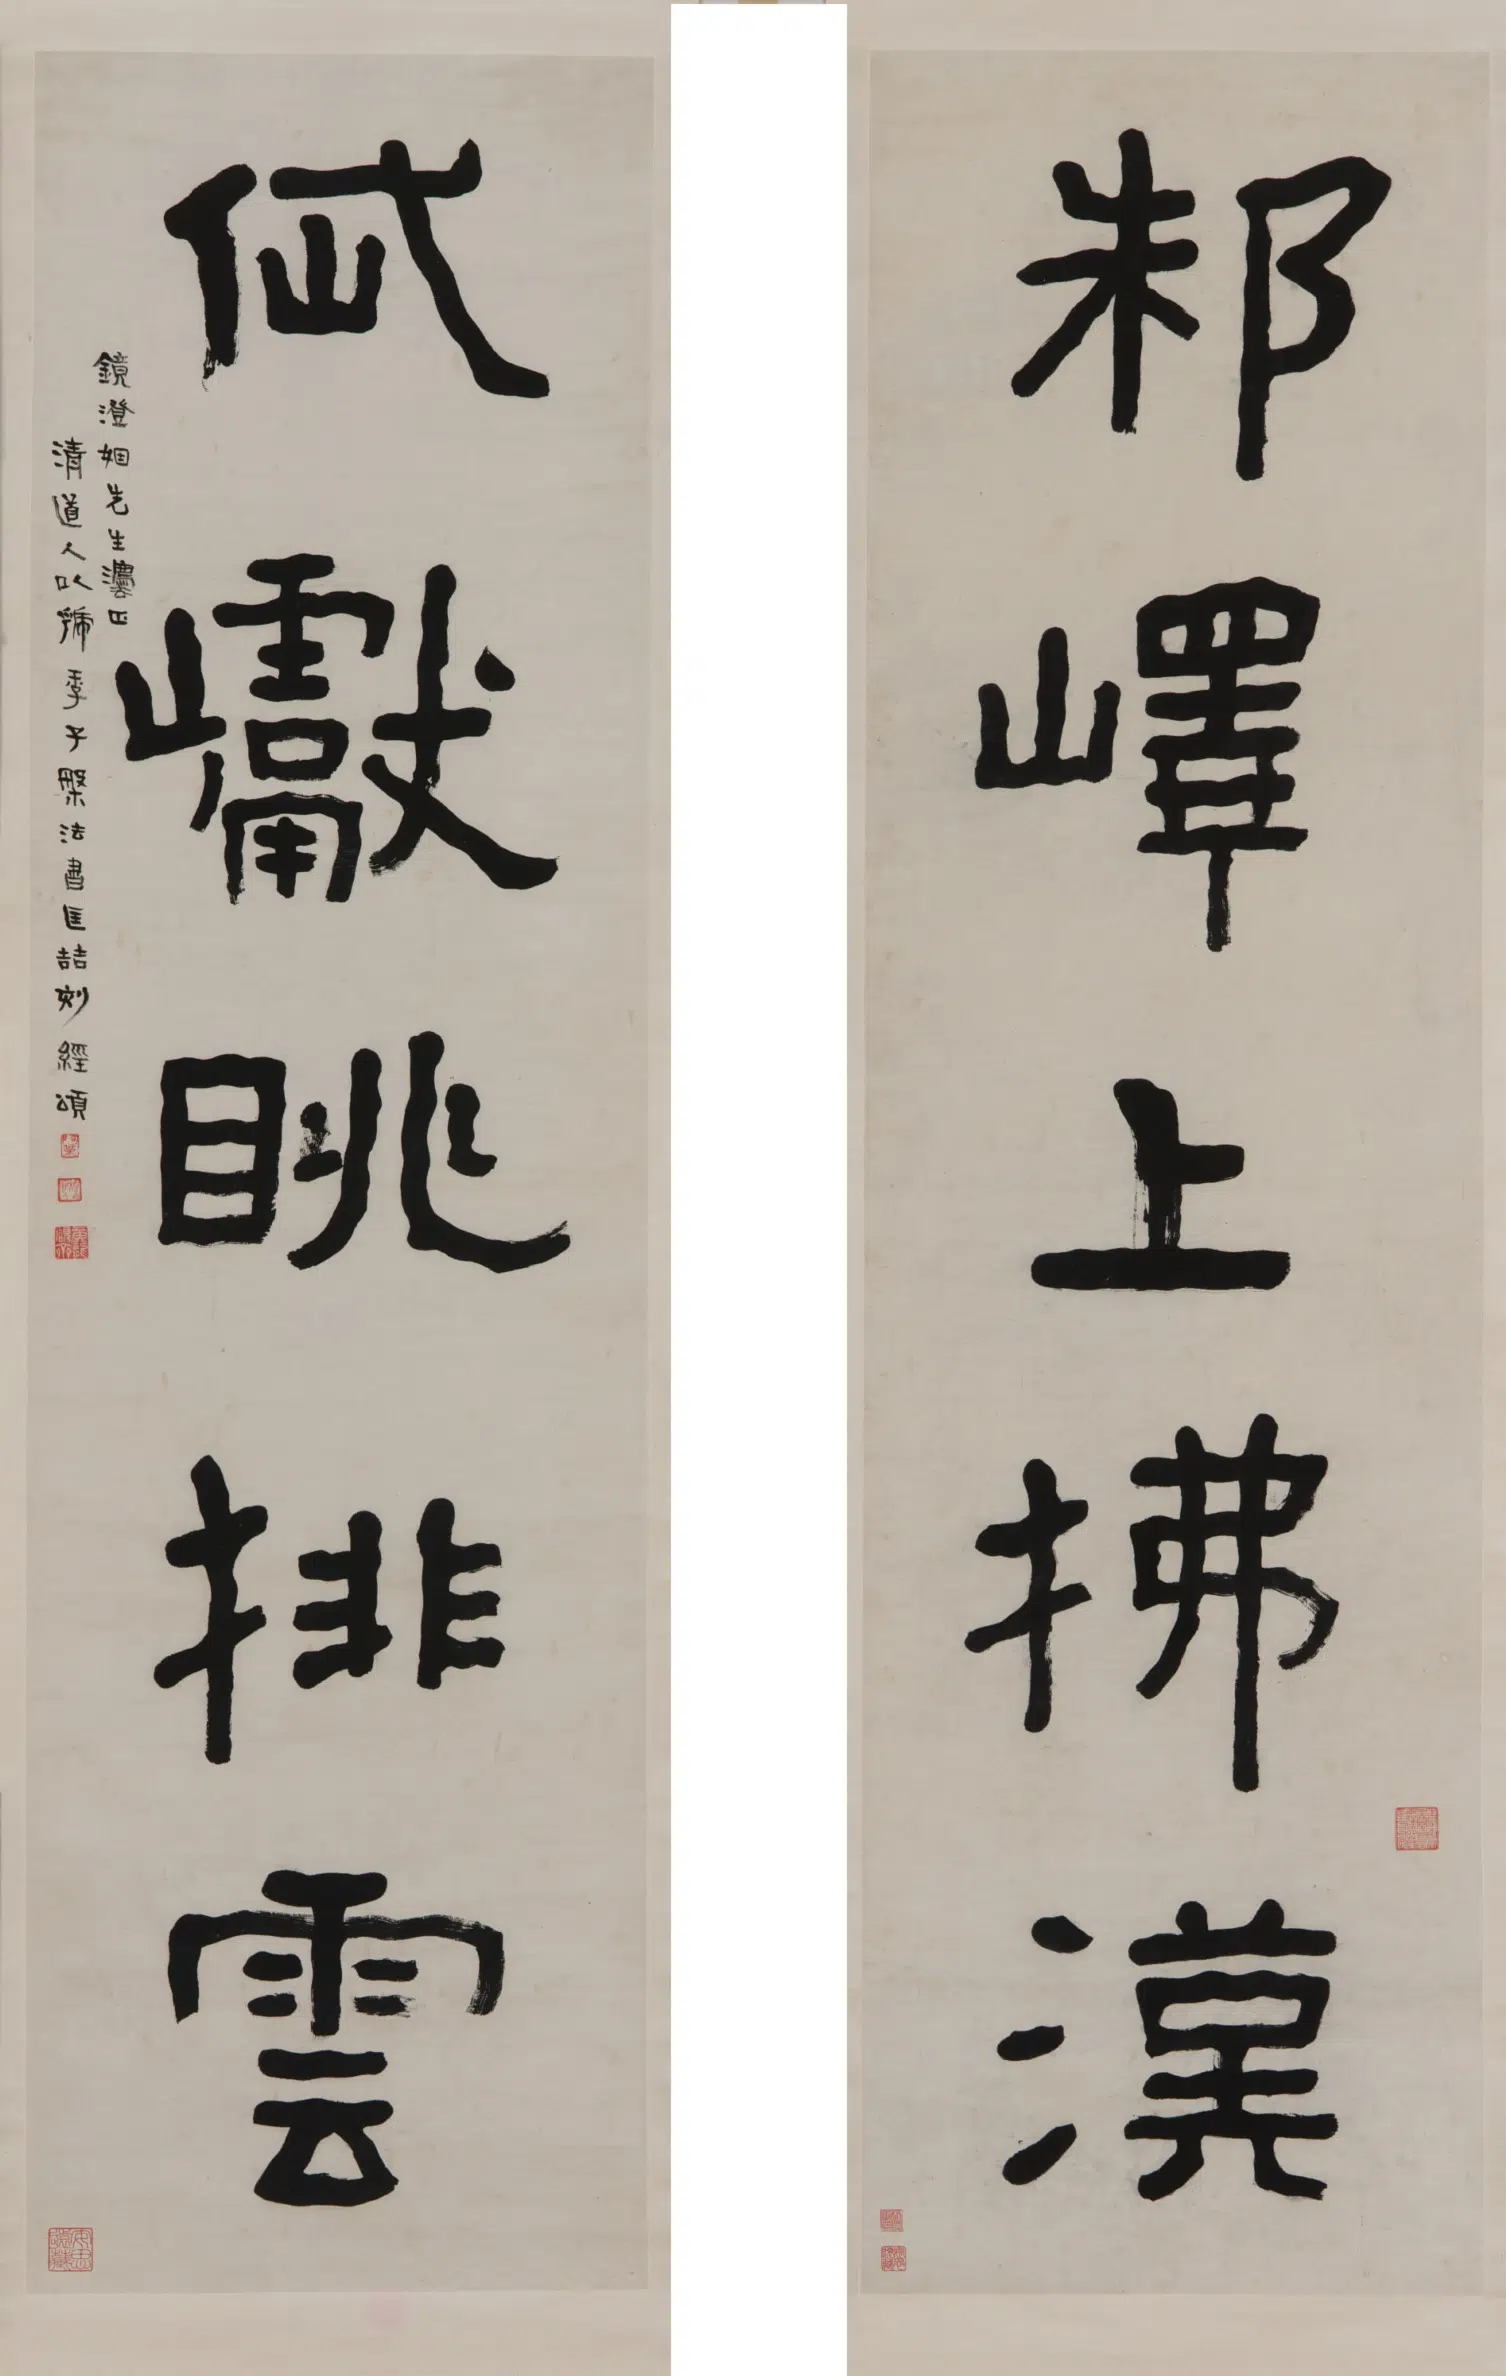 邾嶧上拂漢
岱巘眺排雲
鏡澄姻先生灋正
清道人以虢季子槃法書匡喆刻經頌